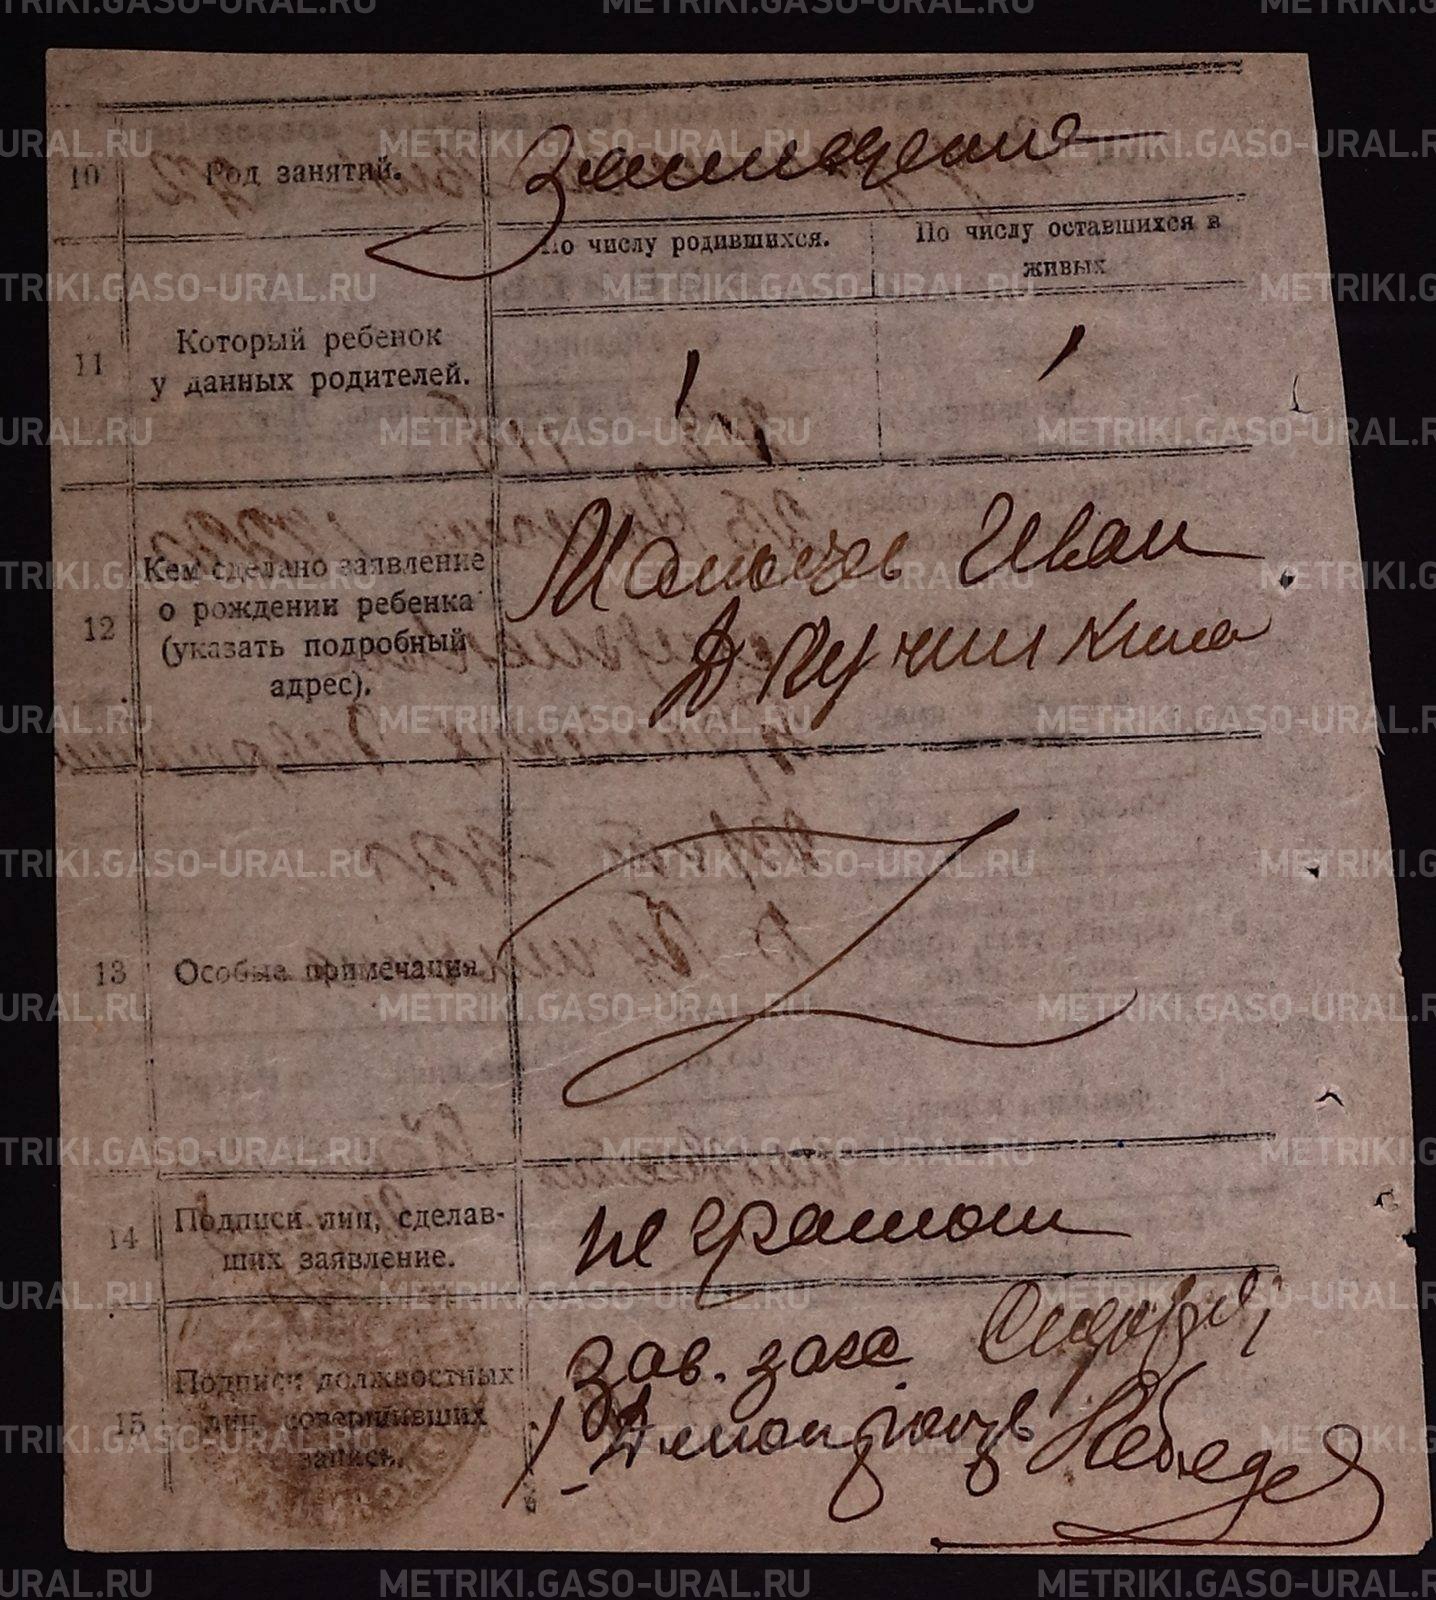 10 Род занятий. Земледелие
По числу родившихся. По числу оставшихся в
живых
11 Который ребенок
у данных родителей.
1 1
12 Кем сделано заявление
о рождении ребенка
(указать подробный
адрес).
Мальцев Иван
Д
13 Особые примечания.
14 Подписи лиц, сделав-
ших заявление.
не грамот
15 Подписи должностных
лиц, совершивших
запись.
Зав. загс
METRIKI.GASO-URAL.RU